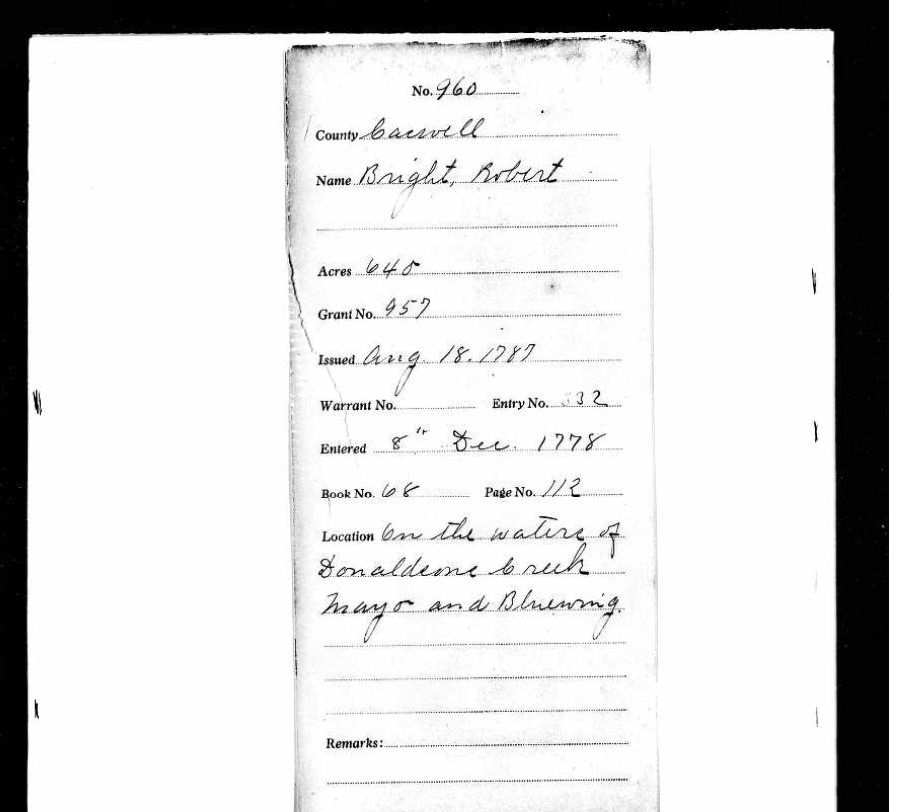 No. 960
County Caswell
Name Bright, Robert
Acres 640
Grant No. 957
Issued Aug 18. 1787
Warrant No. Entry No. 332
Entered 8th Dec. 1778
Book No. 68 Page No. 112
Location On the waters of
Donaldsons Creek
Mayo and Bluewing.
Remarks: